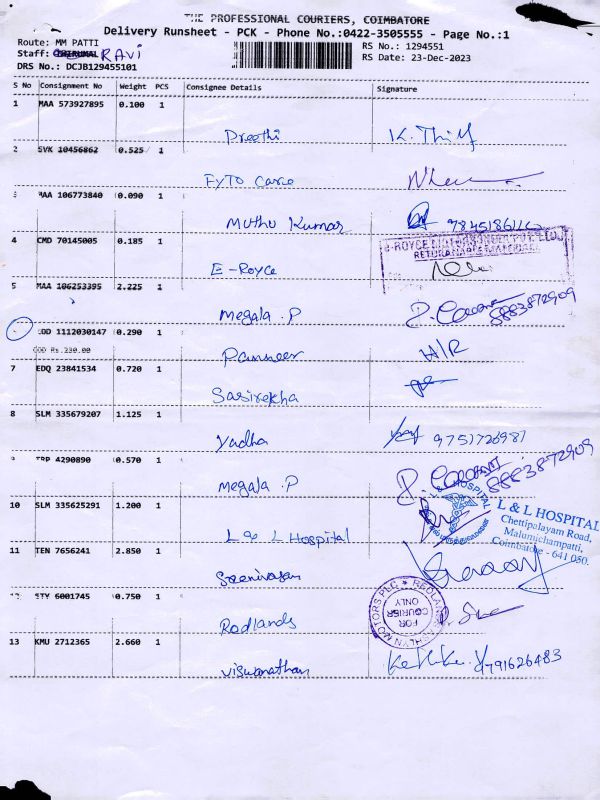 THE PROFESSIONAL COURIERS, COIMBATORE
Delivery Runsheet - PCK - Phone No.:0422-3505555 - Page No.:1
Route: MM PATTI
RS No.: 1294551
Staff: RAVi
RS Date: 23-Dec-2023
DRS No.: DCJB129455101
S No Consignment No Weight PCS Consignee Details Signature
1 MAA 573927895 0.100 1
Preethi
2 SVK 10456862 0.525 1
FyTO Care
3 MAA 106773840 0.090 1
Muthu Kumar
4 CMD 70145005 0.185 1
RETURNABLE MATERIAL
E-Royce
5 MAA 106253395 2.225 1
Megala .P 8883872909
COD 1112030147 0.290 1
COD Rs.230.00
Panneer H/R
7 EDQ 23841534 0.720 1
Sasirekha
8 SLM 335679207 1.125 1
Yadha 9751726981
9 TRP 4290890 0.570 1
Megala .P 8883872909
10 SLM 335625291 1.200 1
L & L HOSPITAL
Chettipalayam Road,
Malumichampatti,
Coimbatore - 641 050.
L & L Hospital
11 TEN 7656241 2.850 1
Sreenivasan
12 STY 6001745 0.750 1
FOR COURIER ONLY
Redlands
13 KMU 2712365 2.660 1
Viswanathan